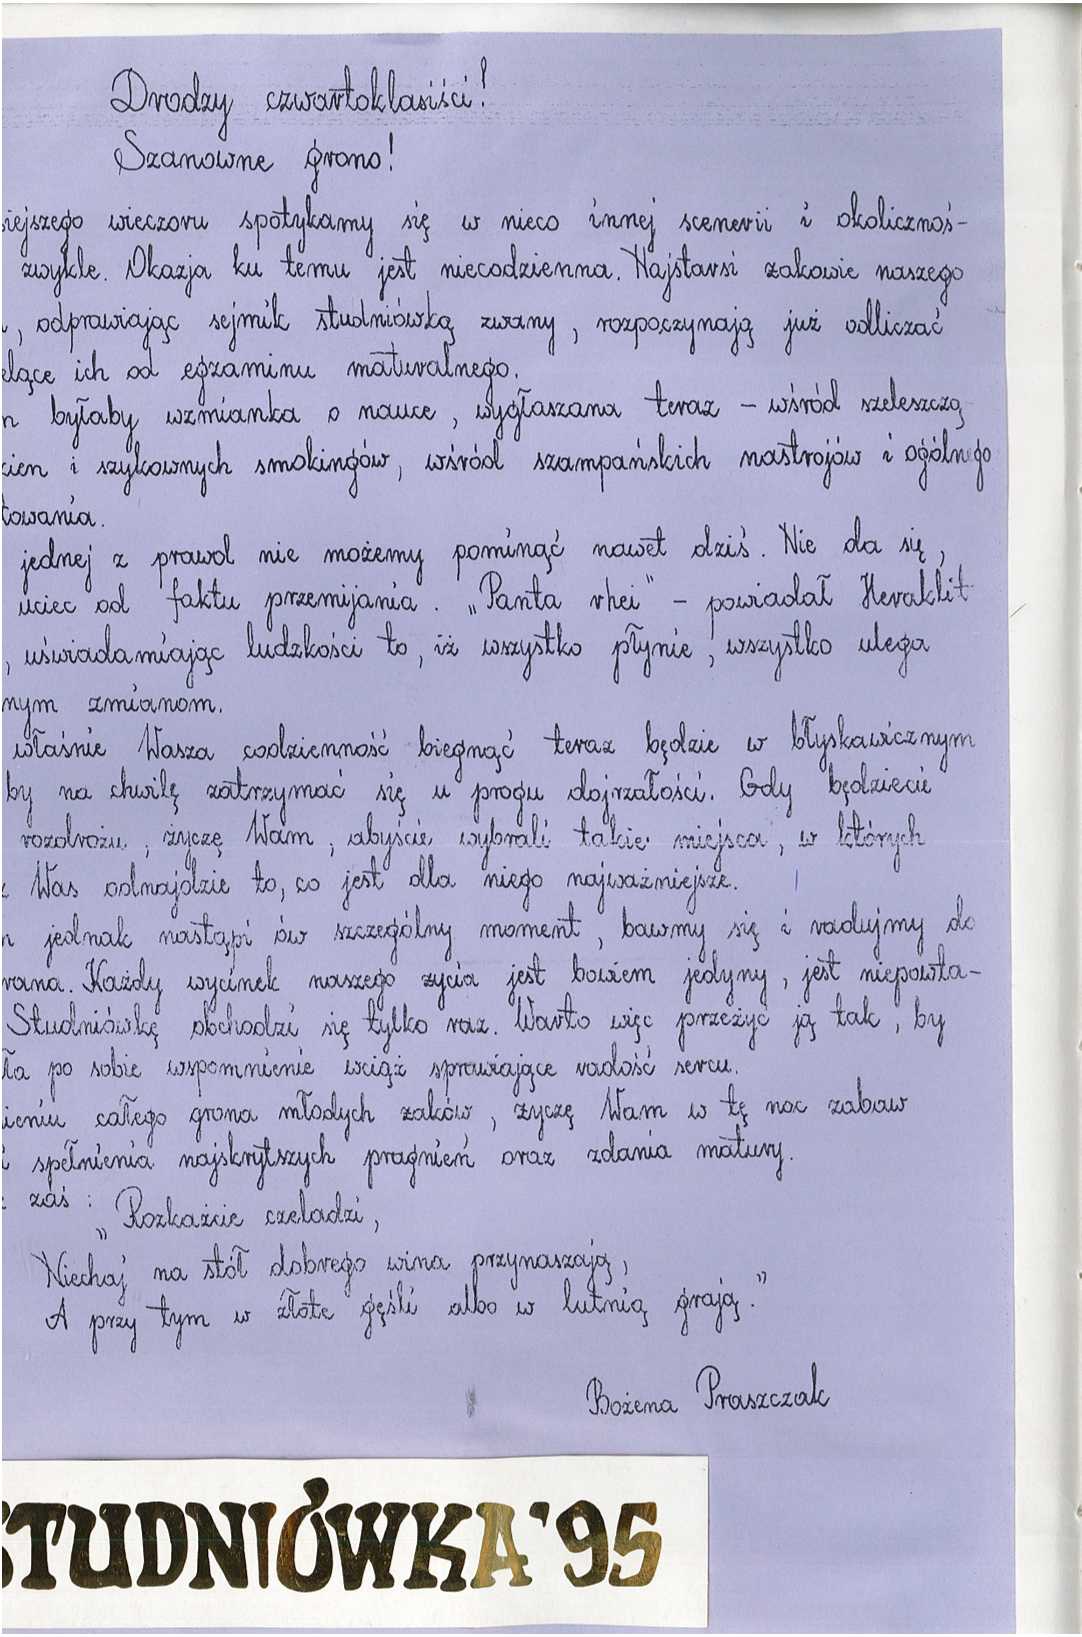 Drodzy czwartoklasiści!
Szanowne grono!
siejszego wieczoru spotykamy się w nieco innej scenerii i okolicznoś-
zwykle. Okazja ku temu jest niecodzienna. Najstarsi żakowie naszego
, odprawiając sejmik studniówką zwany, rozpoczynają już odliczać
elące ich od egzaminu maturalnego.
n byłaby wzmianka o nauce, wygłaszana teraz - wśród szeleszczą-
kien i szykownych smokingów, wśród szampańskich nastrojów i ogólnego
towania.
jednej z prawd nie możemy pominąć nawet dziś. Nie da się,
uciec od faktu przemijania. „Panta rhei" - powiadał Heraklit
, uświadamiając ludzkości to, iż wszystko płynie, wszystko ulega
nym zmianom.
właśnie Wasza codzienność biegnąć teraz będzie w błyskawicznym
by na chwilę zatrzymać się u progu dojrzałości. Gdy będziecie
rozdrożu, życzę Wam, abyście wybrali takie miejsca, w których
z Was odnajdzie to, co jest dla niego najważniejsze.
m jednak nastąpi ów szczególny moment, bawmy się i radujmy do
rana. Każdy wycinek naszego życia jest bowiem jedyny, jest niepowta-
Studniówkę obchodzi się tylko raz. Warto więc przeżyć ją tak, by
ła po sobie wspomnienie wciąż sprawiające radość sercu.
ieniu całego grona młodych żaków, życzę Wam w tę noc zabaw
i spełnienia najskrytszych pragnień oraz zdania matury.
z zaś: „Rozkażcie czeladzi,
Niechaj na stół dobrego wina przynaszają,
A przy tym w złote gęśli albo w lutnią grają."
Bożena Praszczak
STUDNIÓWKA '95